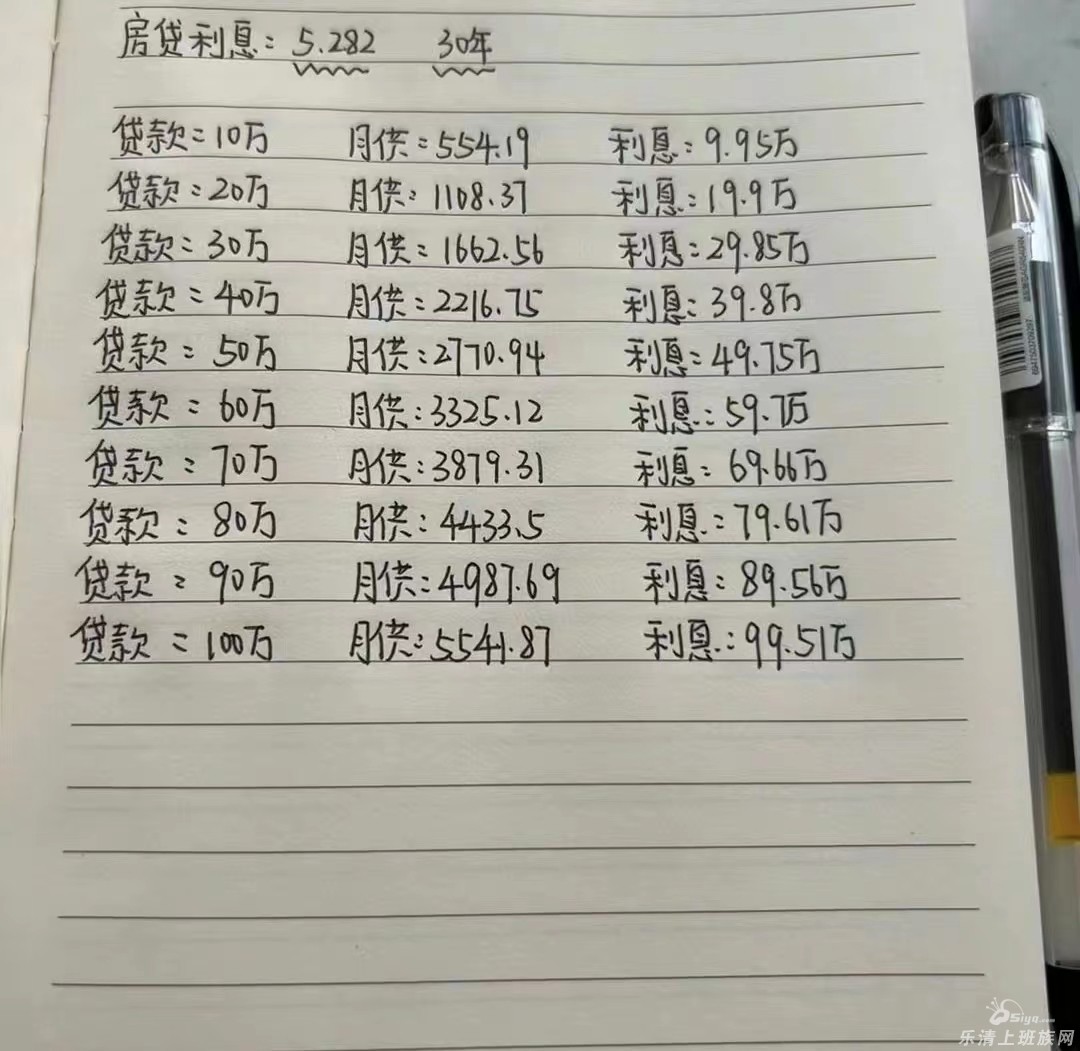 房贷利息：5.282 30年
贷款=10万 月供=554.19 利息：9.95万
贷款：20万 月供：1108.37 利息：19.9万
贷款：30万 月供：1662.56 利息：29.85万
贷款：40万 月供：2216.75 利息：39.8万
贷款：50万 月供：2770.94 利息：49.75万
贷款：60万 月供：3325.12 利息：59.7万
贷款：70万 月供：3879.31 利息：69.66万
贷款：80万 月供：4433.5 利息：79.61万
贷款：90万 月供：4987.69 利息：89.56万
贷款=100万 月供：5541.87 利息：99.51万
乐清上班族网